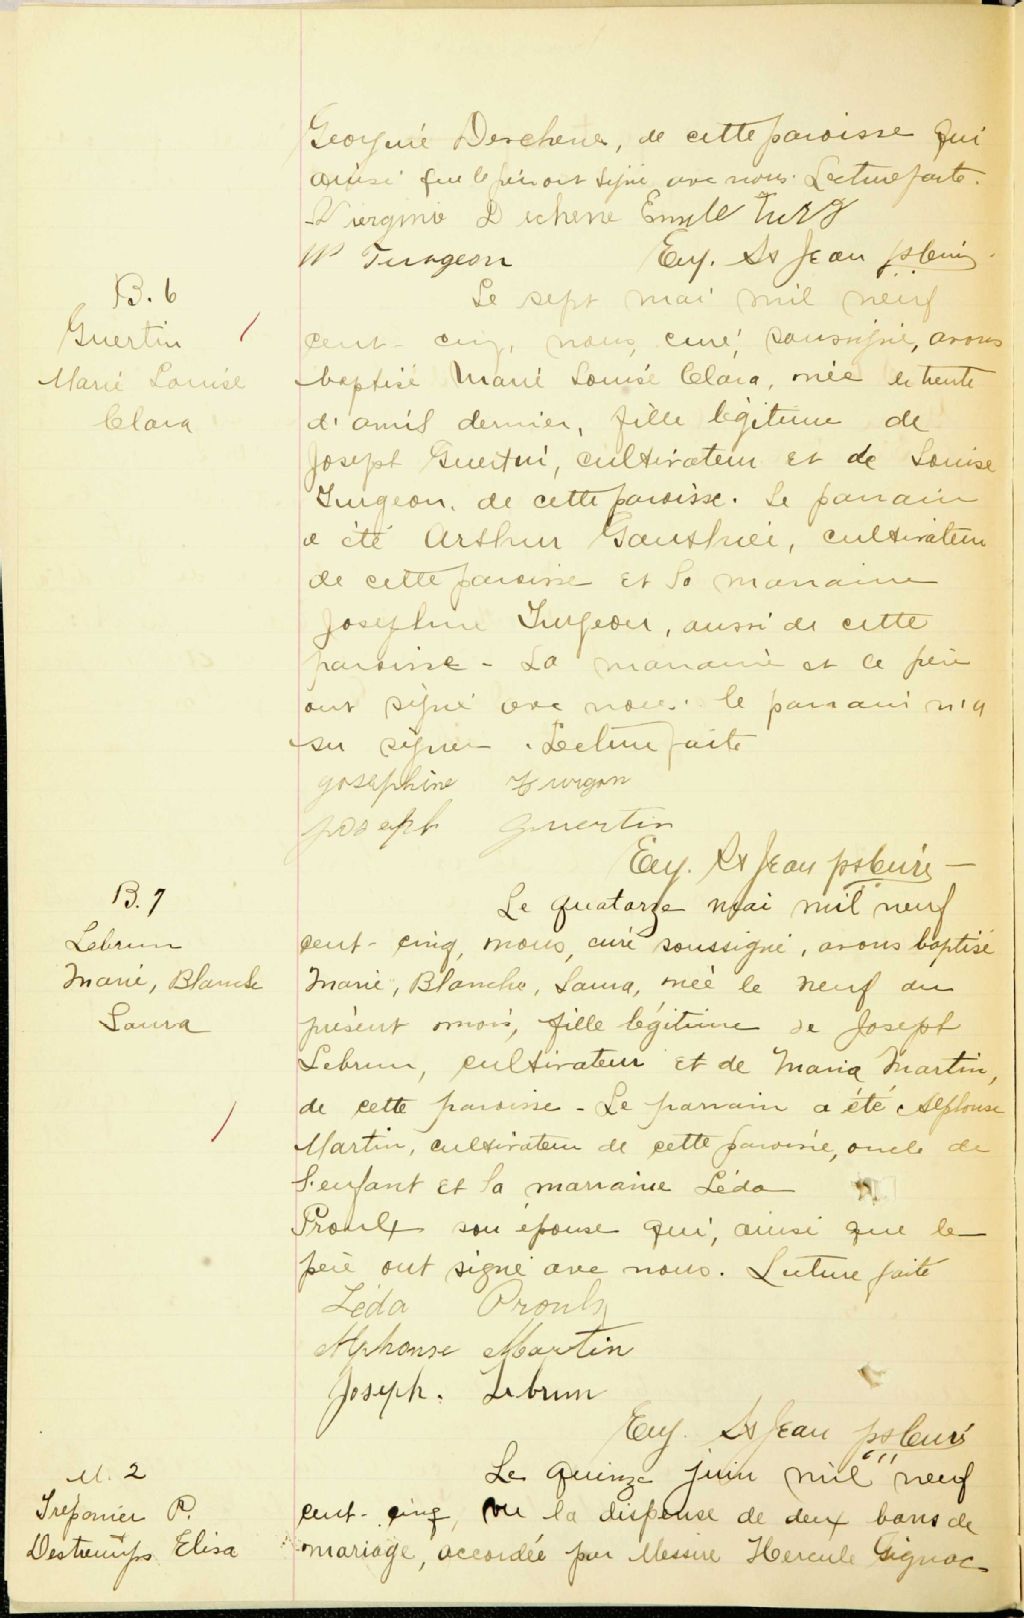 Georgine Deschene, de cette paroisse qui
ainsi que le père ont signé avec nous. Lecture faite.
Virginie D echene Emile
W Turgeon Eug. St Jean ptre Curé
B. 6
Guertin
Marie Louise
Clara
Le sept mai mil neuf
cent-cinq, nous, curé, soussigné, avons
baptisé Marie Louise Clara, née le trente
d'avril dernier, fille légitime de
Joseph Guertin, cultivateur et de Louise
Turgeon, de cette paroisse. Le parrain
a été Arthur Gauthier, cultivateur
de cette paroisse et la marraine
Josephine Turgeon, aussi de cette
paroisse - La marraine et le père
ont signé avec nous. le parrain n'a
su signer. Lecture faite
Josephine Turgon
Joseph Guertin
Eug. St Jean ptre Curé -
B. 7
Lebrun
Marie, Blanche
Laura
Le quatorze mai mil neuf
cent-cinq, nous, curé soussigné, avons baptisé
Marie, Blanche, Laura, née le neuf du
présent mois, fille légitime de Joseph
Lebrun, cultivateur et de Maria Martin,
de cette paroisse - Le parrain a été Alphonse
Martin, cultivateur de cette paroisse, oncle de
l'enfant et la marraine Léda
Proulx son épouse qui, ainsi que le
père ont signé avec nous. Lecture faite
Léda Proulx
Alphonse Martin
Joseph. Lebrun
Eug. St Jean ptre Curé
M. 2
Trépanier P.
Destremps Elisa
Le quinze juin mil neuf
cent-cinq, vu la dispense de deux bans de
mariage, accordée par Messire Hercule Gignac